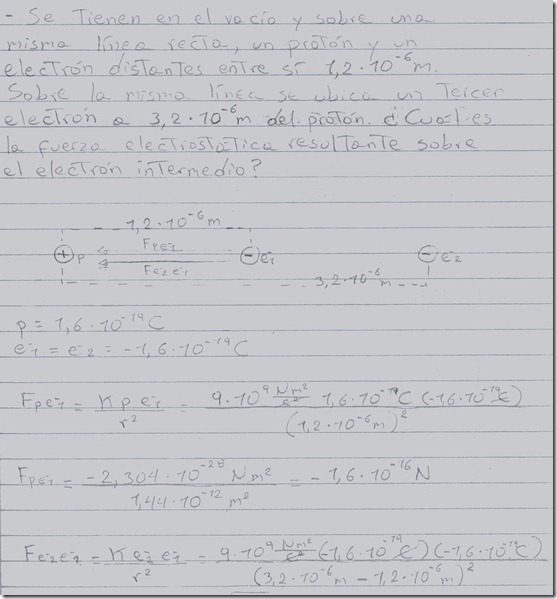 - Se Tienen en el vacío y sobre una
misma línea recta, un protón y un
electrón distantes entre sí 1,2·10⁻⁶m.
Sobre la misma línea se ubica un Tercer
electrón a 3,2·10⁻⁶m del protón. ¿Cual es
la fuerza electrostática resultante sobre
el electrón intermedio?
1,2·10⁻⁶m
+ p Fpe⁻₁ - e⁻₁ - e⁻₂
Fe⁻₂e⁻₁
3,2·10⁻⁶m
p = 1,6·10⁻¹⁹C
e⁻₁ = e⁻₂ = -1,6·10⁻¹⁹C
Fpe⁻₁ = K p e⁻₁ / r² = 9·10⁹ Nm²/C² 1,6·10⁻¹⁹C (-1,6·10⁻¹⁹C) / (1,2·10⁻⁶m)²
Fpe⁻₁ = -2,304·10⁻²⁸ Nm² / 1,44·10⁻¹² m² = -1,6·10⁻¹⁶N
Fe⁻₂e⁻₁ = K e⁻₂ e⁻₁ / r² = 9·10⁹ Nm²/C² (-1,6·10⁻¹⁹C)(-1,6·10⁻¹⁹C) / (3,2·10⁻⁶m - 1,2·10⁻⁶m)²